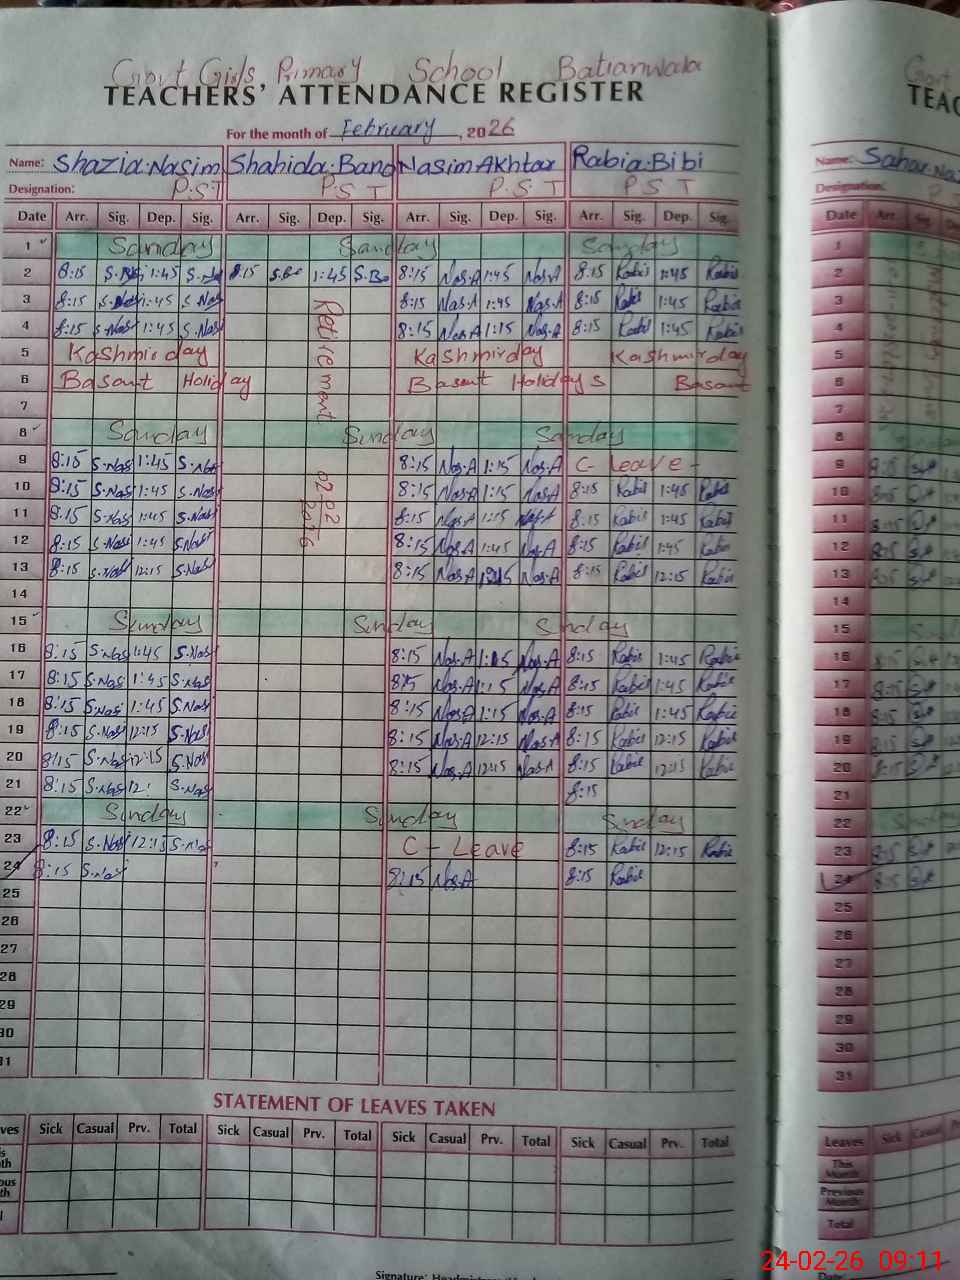 Govt Girls Primary School Batianwala
TEACHERS' ATTENDANCE REGISTER
For the month of February, 2026
Name: Shazia.Nasim Shahida.Bano Nasim Akhtar Rabia.Bibi
Designation: P.S.T P.S.T P.S.T P.S.T
Date Arr. Sig. Dep. Sig. Arr. Sig. Dep. Sig. Arr. Sig. Dep. Sig. Arr. Sig. Dep. Sig.
1 Sunday Sunday Sunday
2 8:15 S.Nas 1:45 S.Nas 8:15 S.Bo 1:45 S.Bo 8:15 Nas.A 1:45 Nas.A 8:15 Rabis 1:45 Rabis
3 8:15 S.Nas 1:45 S.Nas 8:15 Nas.A 1:45 Nas.A 8:15 Rabis 1:45 Rabis
4 8:15 S.Nas 1:45 S.Nas 8:15 Nas.A 1:45 Nas.A 8:15 Rabis 1:45 Rabis
5 Kashmir day Kashmir day Kashmir day
6 Basant Holiday Basant Holidays Basant
7
Retirement 02-02 2026
8 Sunday Sunday Sunday
9 8:15 S.Nas 1:45 S.Nas 8:15 Nas.A 1:15 Nas.A C- Leave -
10 8:15 S.Nas 1:45 S.Nas 8:15 Nas.A 1:15 Nas.A 8:15 Rabis 1:45 Rabis
11 8:15 S.Nas 1:45 S.Nas 8:15 Nas.A 1:15 Nas.A 8:15 Rabis 1:45 Rabis
12 8:15 S.Nas 1:45 S.Nas 8:15 Nas.A 1:45 Nas.A 8:15 Rabis 1:45 Rabis
13 8:15 S.Nas 12:15 S.Nas 8:15 Nas.A Nas.A 8:15 Rabis 12:15 Rabis
14
15 Sunday Sunday Sunday
16 8:15 S.Nas 1:45 S.Nas 8:15 Nas.A 1:15 Nas.A 8:15 Rabis 1:45 Rabis
17 8:15 S.Nas 1:45 S.Nas 8:15 Nas.A 1:15 Nas.A 8:15 Rabis 1:45 Rabis
18 8:15 S.Nas 1:45 S.Nas 8:15 Nas.A 1:15 Nas.A 8:15 Rabis 1:45 Rabis
19 8:15 S.Nas 12:15 S.Nas 8:15 Nas.A 12:15 Nas.A 8:15 Rabis 12:15 Rabis
20 8:15 S.Nas 12:15 S.Nas 8:15 Nas.A 12:15 Nas.A 8:15 Rabis 12:15 Rabis
21 8:15 S.Nas 12: S.Nas 8:15
22 Sunday Sunday Sunday
23 8:15 S.Nas 12:15 S.Nas C - Leave 8:15 Rabis 12:15 Rabis
24 8:15 S.Nas 8:15 Nas.A 8:15 Rabis
25
26
27
28
29
30
31
STATEMENT OF LEAVES TAKEN
Sick Casual Prv. Total Sick Casual Prv. Total Sick Casual Prv. Total Sick Casual Prv. Total
Govt
TEAC
Name: Sahar.Na
Designation:
Date Arr.
1
2
3
4
5
6
7
8
9
10
11
12
13
14
15
16
17
18
19
20
21
22
23
24
25
26
27
28
29
30
31
Leaves Sick Casual
This Month
Previous Month
Total
24-02-26 09:11